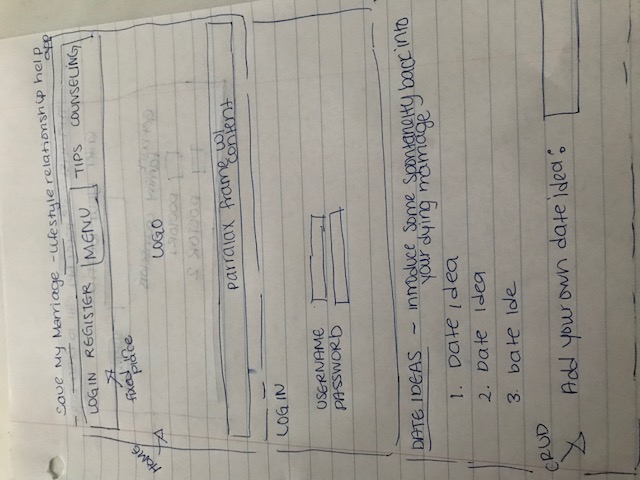 Save My Marriage - Lifestyle relationship help
app
LOGIN REGISTER MENU TIPS COUNSELING
fixed in
place
HOME
LOGO
DOCTOR 1
DOCTOR 2
parralax frame w/
content
LOGIN
USERNAME
PASSWORD
DATE IDEAS - introduce some spontaneity back into
your dying marriage
1. Date idea
2. Date idea
3. Date ide
CRUD
Add your own date idea: